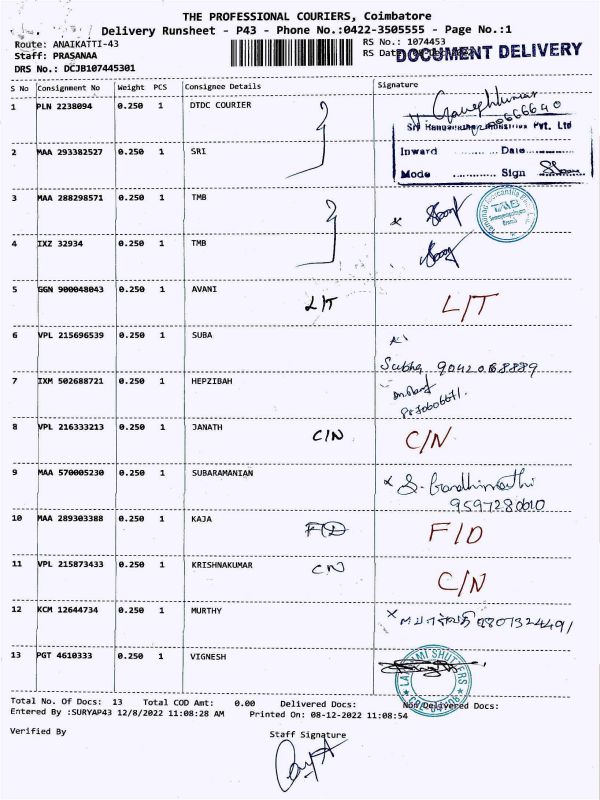 THE PROFESSIONAL COURIERS, Coimbatore
Delivery Runsheet - P43 - Phone No.:0422-3505555 - Page No.:1
Route: ANAIKATTI-43
RS No.: 1074453
Staff: PRASANAA
RS Date
DOCUMENT DELIVERY
DRS No.: DCJB107445301
S No Consignment No Weight PCS Consignee Details Signature
1 PLN 2238094 0.250 1 DTDC COURIER
Pvt. Ltd
Inward Date
Mode Sign
2 MAA 293382527 0.250 1 SRI
3 MAA 288298571 0.250 1 TMB
TMB
4 IXZ 32934 0.250 1 TMB
5 GGN 900048043 0.250 1 AVANI L/T L/T
6 VPL 215696539 0.250 1 SUBA
Subha
7 IXM 502688721 0.250 1 HEPZIBAH
8 VPL 216333213 0.250 1 JANATH C/N C/N
9 MAA 570005230 0.250 1 SUBARAMANIAN
S. Gandhimathi
9597280610
10 MAA 289303388 0.250 1 KAJA F/D F/D
11 VPL 215873433 0.250 1 KRISHNAKUMAR C/N C/N
12 KCM 12644734 0.250 1 MURTHY
13 PGT 4610333 0.250 1 VIGNESH
LAXMI SHUTTERS
Total No. Of Docs: 13 Total COD Amt: 0.00 Delivered Docs: Non Delivered Docs:
Entered By :SURYAP43 12/8/2022 11:08:28 AM Printed On: 08-12-2022 11:08:54
Verified By Staff Signature